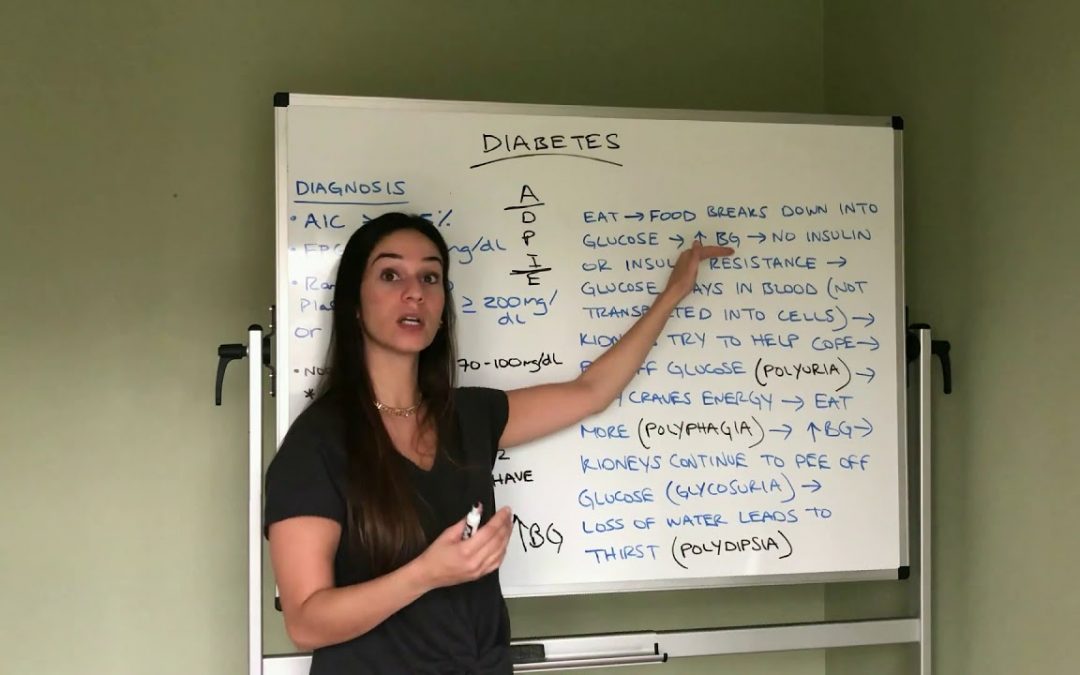 DIABETES
DIAGNOSIS
• A1C 5%
mg/dl
≥ 200mg/
dL
or
70-100mg/dL
*
HAVE
↑BG
A
D
P
I
E
EAT → FOOD BREAKS DOWN INTO
GLUCOSE → ↑ BG → NO INSULIN
OR RESISTANCE →
GLUCOSE IN BLOOD (NOT
INTO CELLS) →
TRY TO HELP COPE →
OFF GLUCOSE (POLYURIA) →
CRAVES ENERGY → EAT
MORE (POLYPHAGIA) → ↑BG →
KIDNEYS CONTINUE TO PEE OFF
GLUCOSE (GLYCOSURIA) →
LOSS OF WATER LEADS TO
THIRST (POLYDIPSIA)